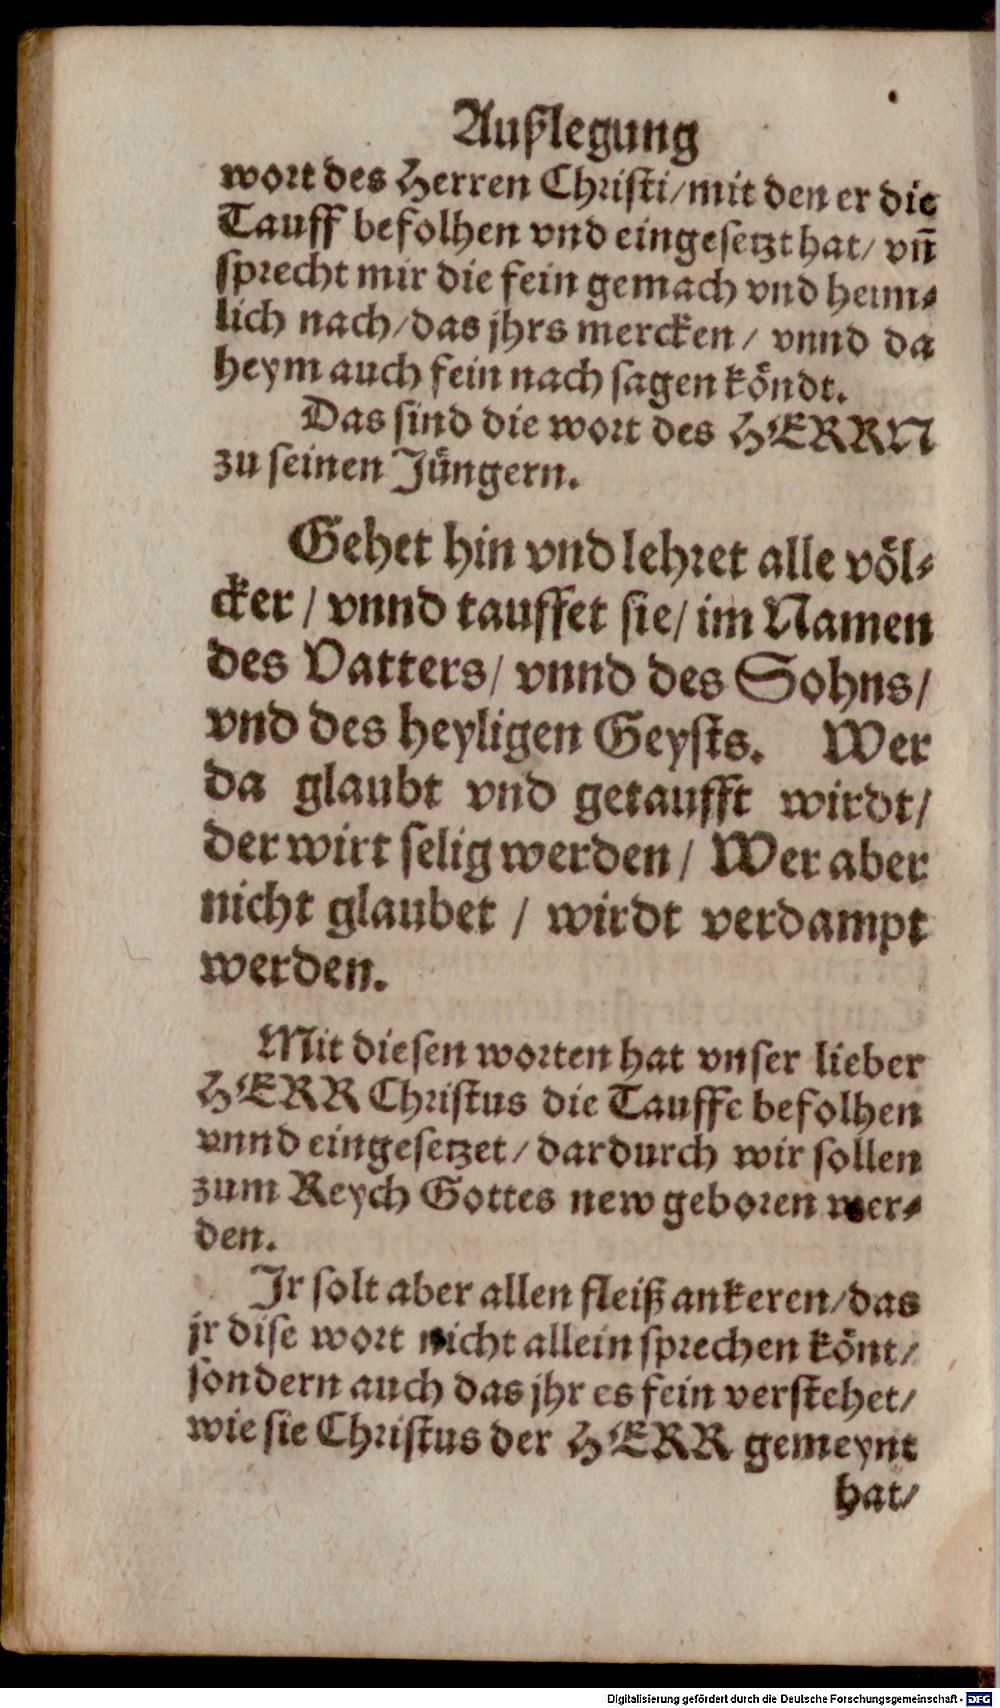 Außlegung
wort des Herren Christi/mit den er die
Tauff befolhen vnd eingesetzt hat/ vñ
sprecht mir die fein gemach vnd heim⸗
lich nach/das jhrs mercken/ vnnd da
heym auch fein nach sagen köndt.
Das sind die wort des HERRN
zu seinen Jüngern.
Gehet hin vnd lehret alle völ⸗
cker/ vnnd tauffet sie/ im Namen
des Vatters/ vnnd des Sohns/
vnd des heyligen Geysts. Wer
da glaubt vnd getaufft wirdt/
der wirt selig werden/ Wer aber
nicht glaubet/ wirdt verdampt
werden.
Mit diesen worten hat vnser lieber
HERR Christus die Tauffe befolhen
vnnd eingesetzet/ dardurch wir sollen
zum Reych Gottes new geboren wer⸗
den.
Jr solt aber allen fleiß ankeren/das
jr dise wort nicht allein sprechen könt/
sondern auch das jhr es fein verstehet/
wie sie Christus der HERR gemeynt
hat/
Digitalisierung gefördert durch die Deutsche Forschungsgemeinschaft - DFG